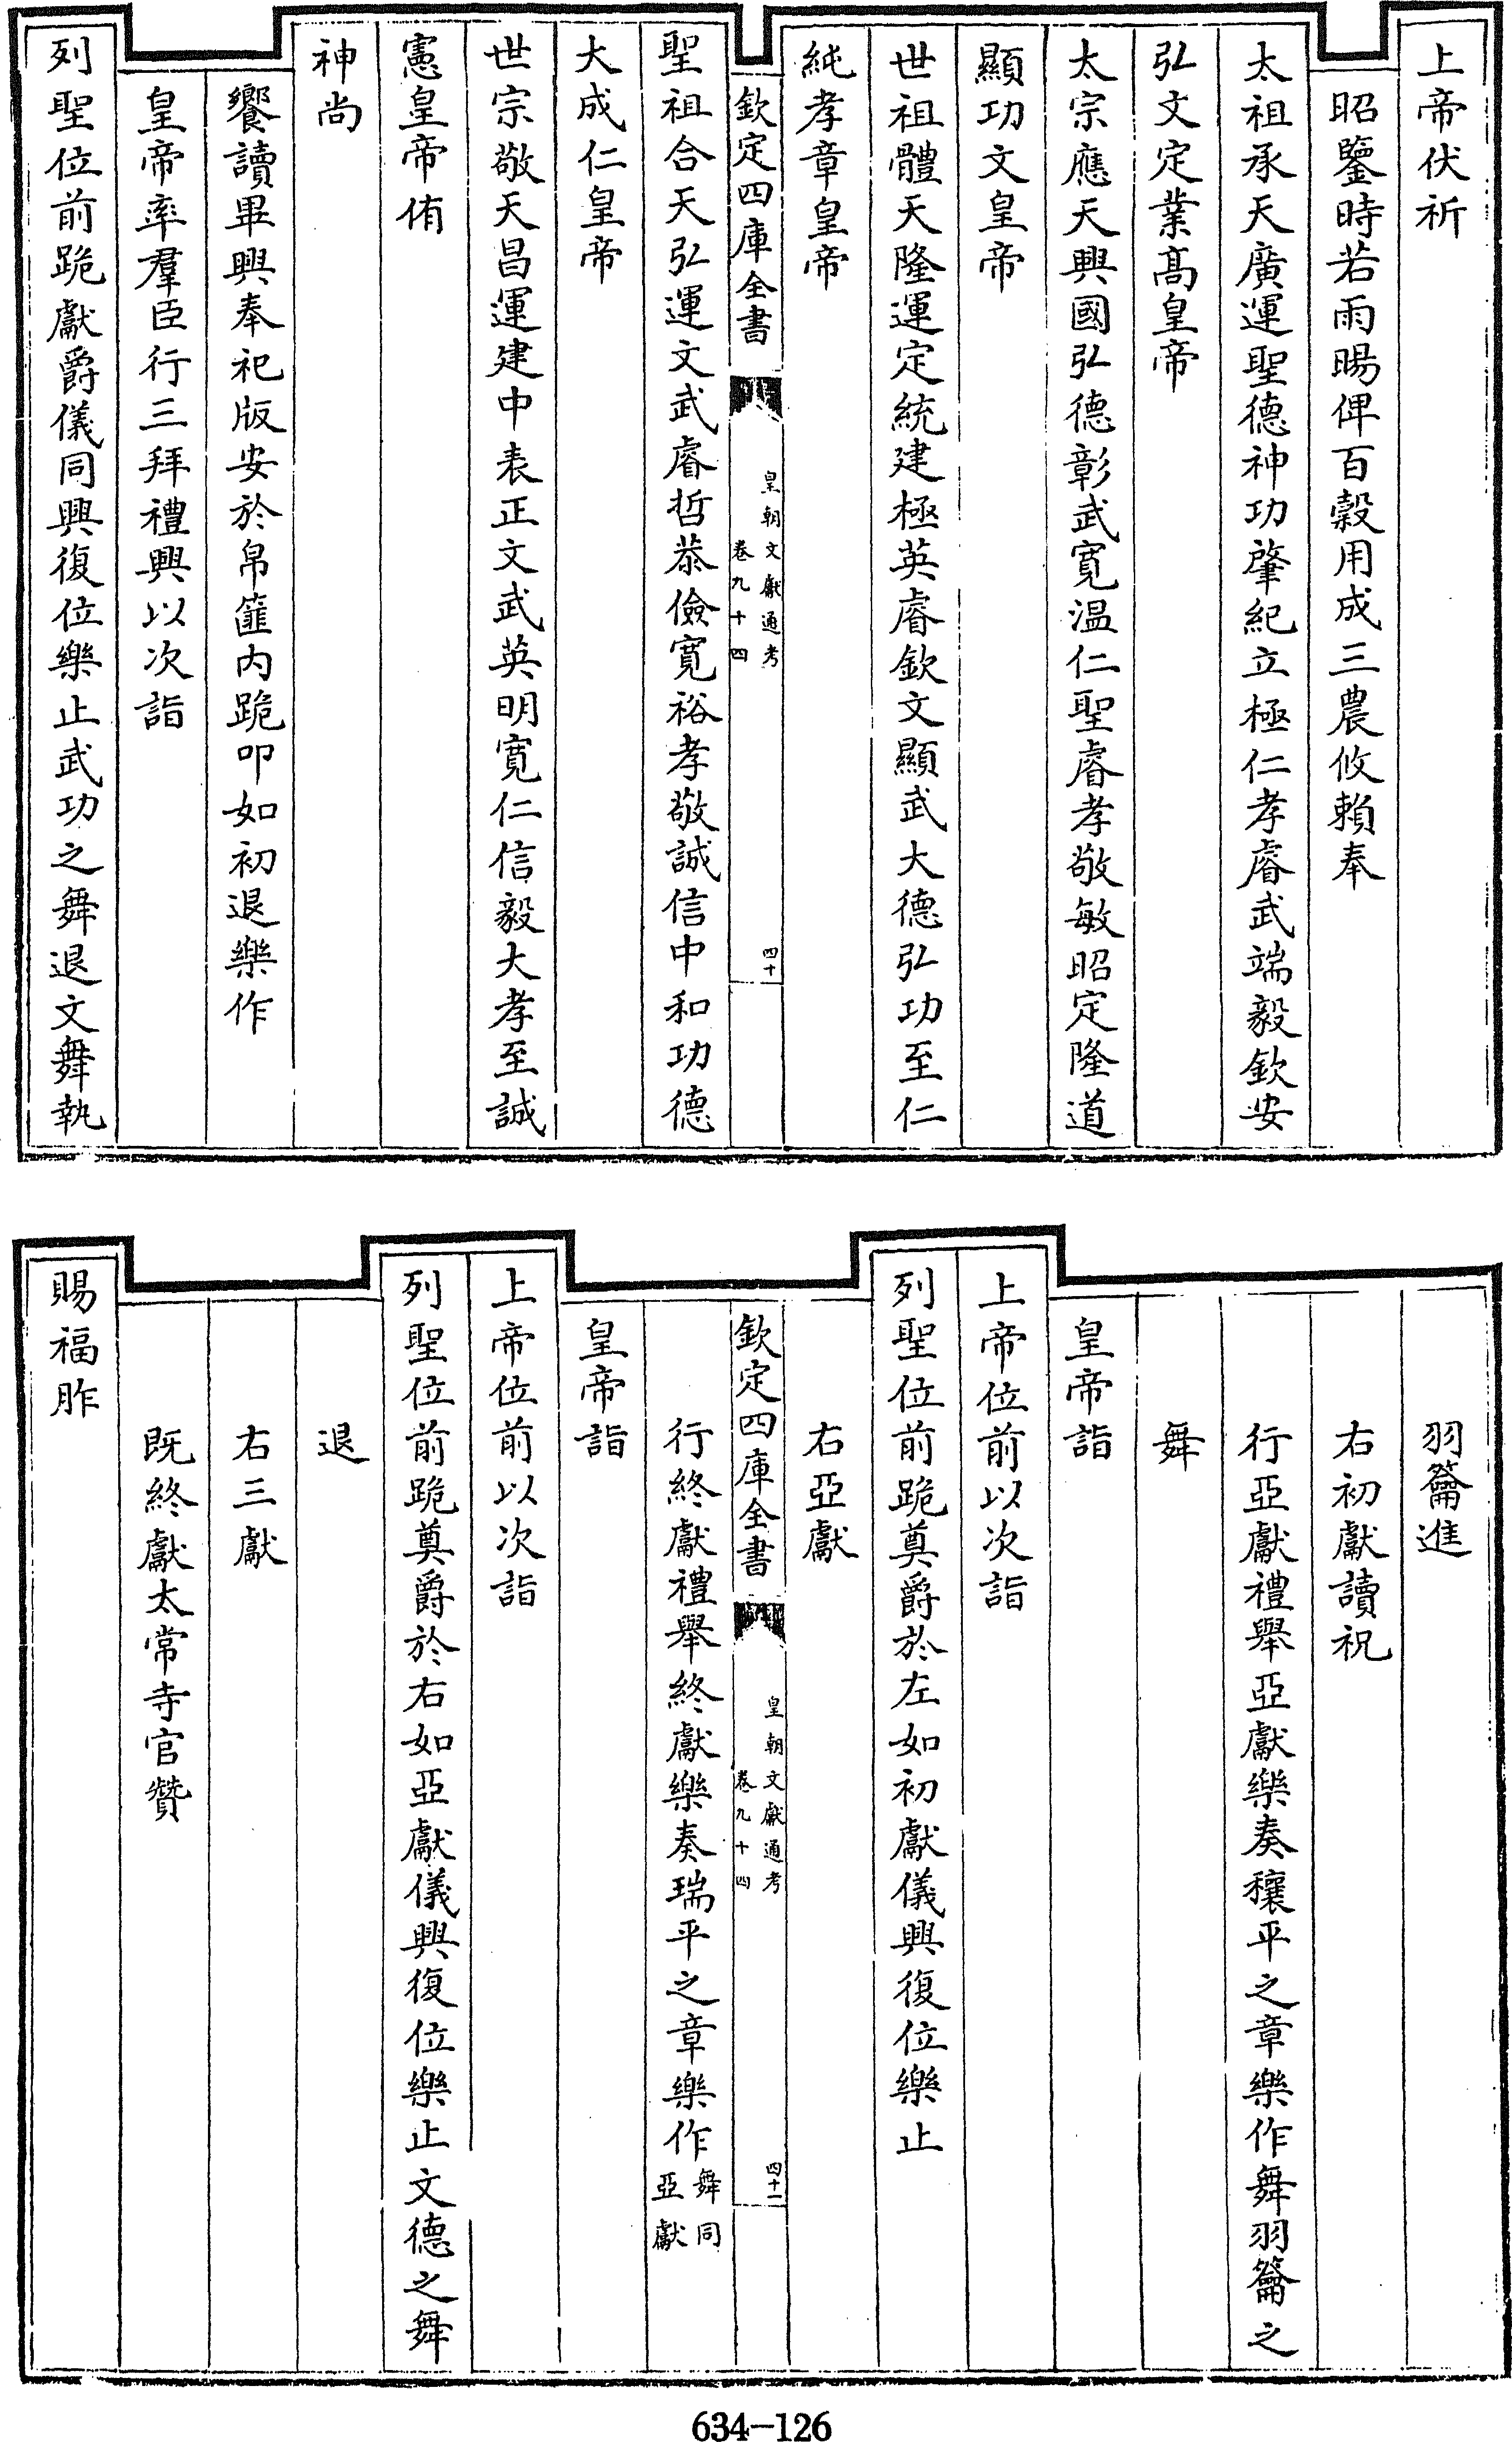 上帝伏祈
昭鑒時若雨暘俾百榖用成三農攸賴奉
太祖承天廣運聖德神功肇紀立極仁孝睿武端毅欽安
弘文定業髙皇帝
太宗應天興國弘德彰武寛温仁聖睿孝敬敏昭定隆道
顯功文皇帝
世祖體天隆運定統建極英睿欽文顯武大德弘功至仁
純孝章皇帝
欽定四庫全書
皇朝文獻通考
卷九十四
四十
聖祖合天弘運文武睿哲恭儉寛裕孝敬誠信中和功德
大成仁皇帝
世宗敬天昌運建中表正文武英明寛仁信毅大孝至誠
憲皇帝侑
神尚
饗讀畢興奉祀版安於帛篚内跪叩如初退樂作
皇帝率羣臣行三拜禮興以次詣
列聖位前跪獻爵儀同興復位樂止武功之舞退文舞執
羽籥進
右初獻讀祝
行亞獻禮舉亞獻樂奏穰平之章樂作舞羽籥之
舞
皇帝詣
上帝位前以次詣
列聖位前跪奠爵於左如初獻儀興復位樂止
右亞獻
欽定四庫全書
皇朝文獻通考
卷九十四
四十一
行終獻禮舉終獻樂奏瑞平之章樂作舞同亞獻
皇帝詣
上帝位前以次詣
列聖位前跪奠爵於右如亞獻儀興復位樂止文德之舞
退
右三獻
既終獻太常寺官贊
賜福胙
634-126